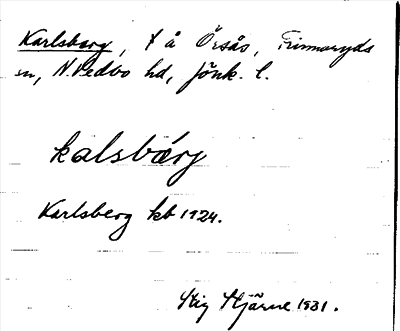 Karlsberg, t å Örsås, Frinnaryds
sn, N. Vedbo hd, Jönk. l.
kalsbárj
Karlsberg kb 1924.
Stig Hjärne 1931.